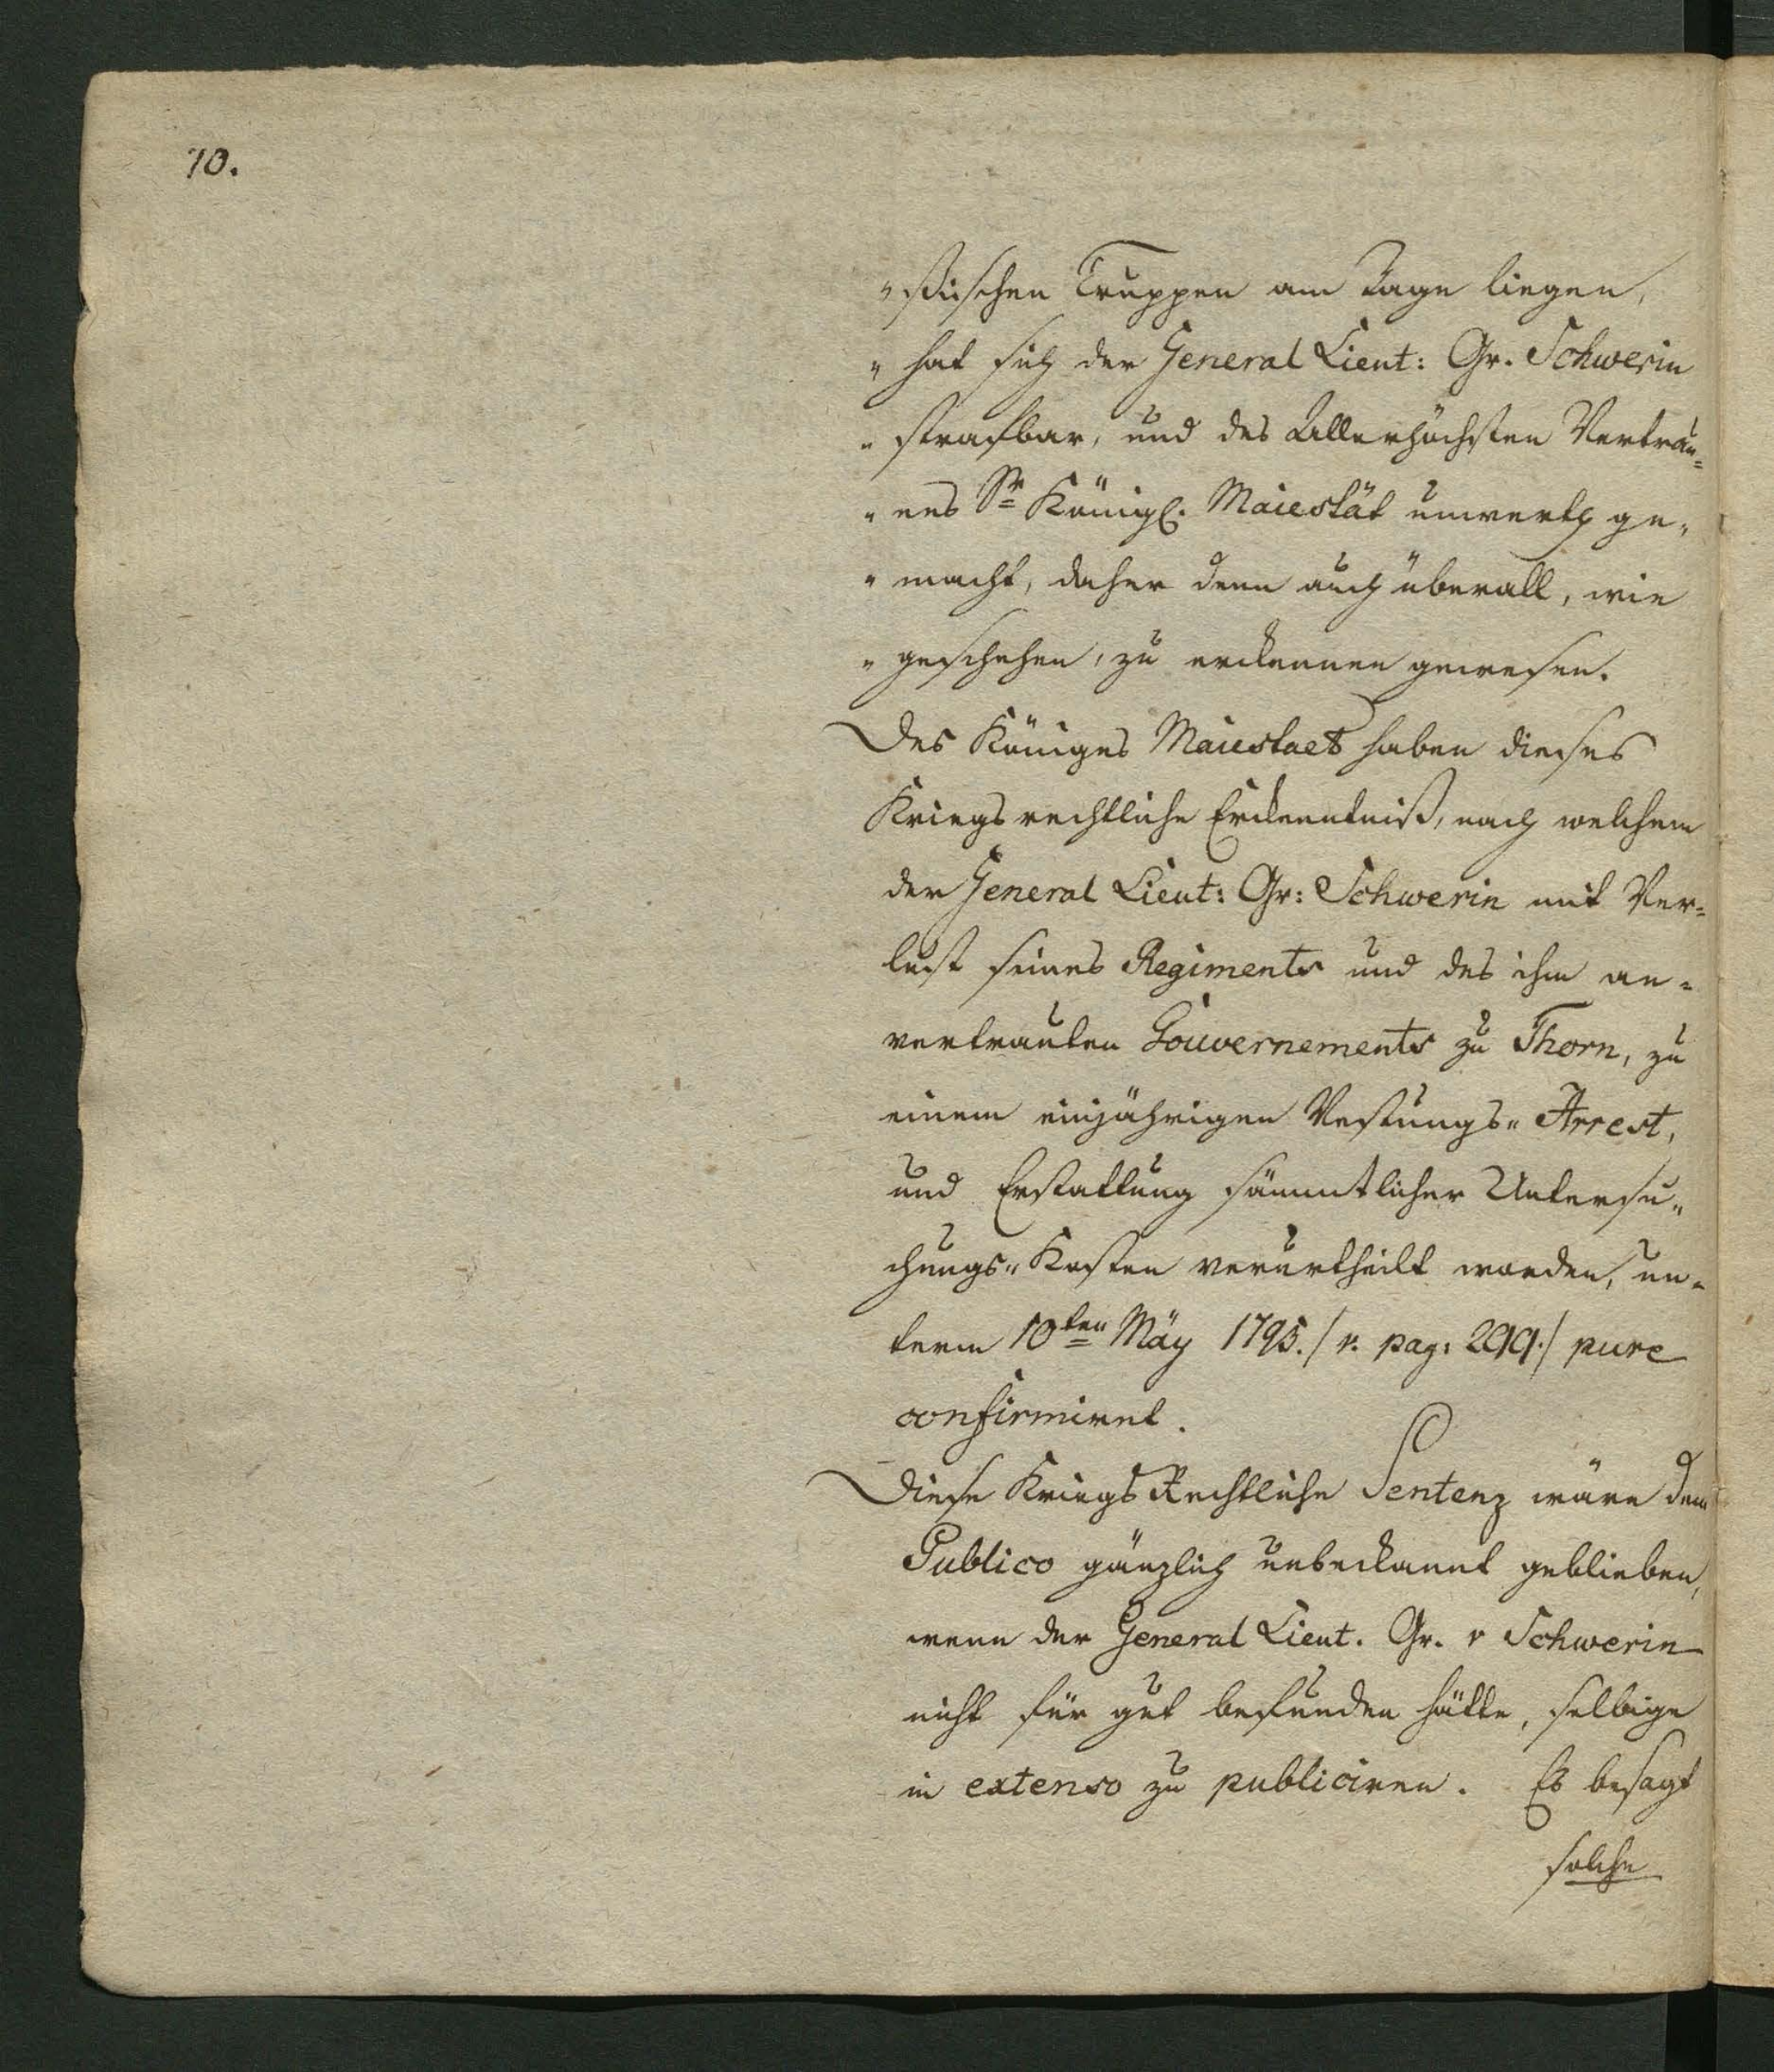 10.
"ßischen Truppen am Tage liegen,
" hat sich der General Lieut: Gr. Schwerin
" strafbar, und des Allerhöchsten Vertrau=
" ens Sr Königl. Maiestät unwerth ge"
" macht, daher denn auch überall, wie
" geschehen, zu erckennen gewesen.
Des Königes Maiestaet haben dieses
Kriegsrechtliche Erckenntniß, nach welchem
der General Lieut: Gr: Schwerin mit Ver=
lust seines Regiments und des ihm an=
vertrauten Gouvernements zu Thorn, zu
einem einjährigen Vestungs" Arrest,
und Erstattung sämmtlicher Untersu"
chungs" Kosten verurtheilt worden, un=
term 10ten May 1795. /v. pag: 299./ pure
confirmiret.
Diese KriegsRechtliche Sentenz wäre dem
Publico gänzlich unbeckannt geblieben,
wenn der General Lieut. Gr. v Schwerin
nicht für gut befunden hätte, selbige
in extenso zu publiciren. Es besagt
solche